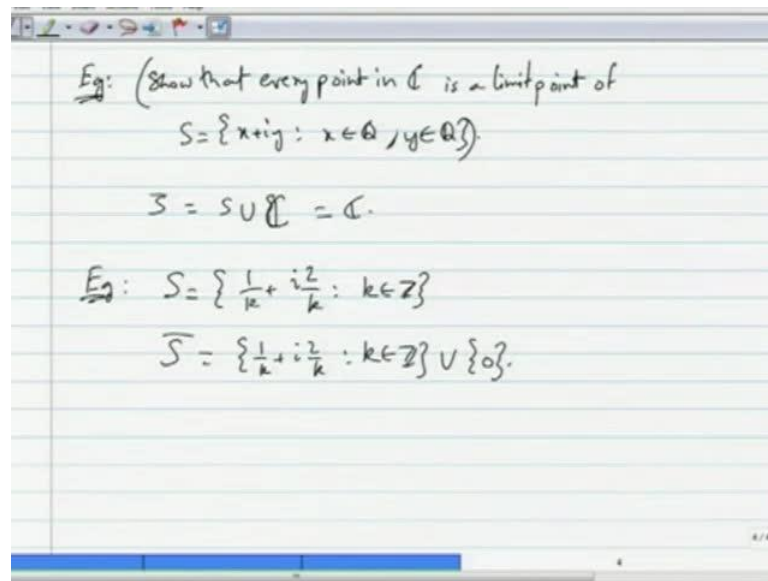 Eg: (Show that every point in ℂ is a limit point of
S = {x+iy : x ∈ ℚ, y ∈ ℚ}).
S̄ = S ∪ ℂ = ℂ.
Eg: S = { 1/k + i 2/k : k ∈ ℤ}
S̄ = { 1/k + i 2/k : k ∈ ℤ} ∪ {0}.